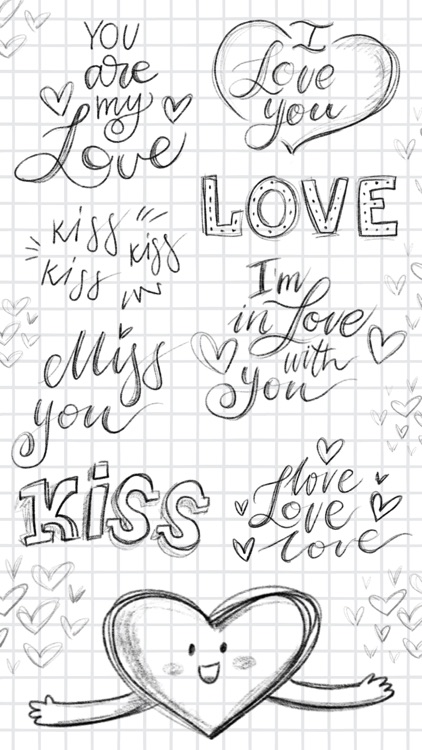 YOU
are
my
Love
I
Love
you
LOVE
kiss
kiss
kiss
I'm
in Love
with
you
Miss
you
KiSS
love
Love
love